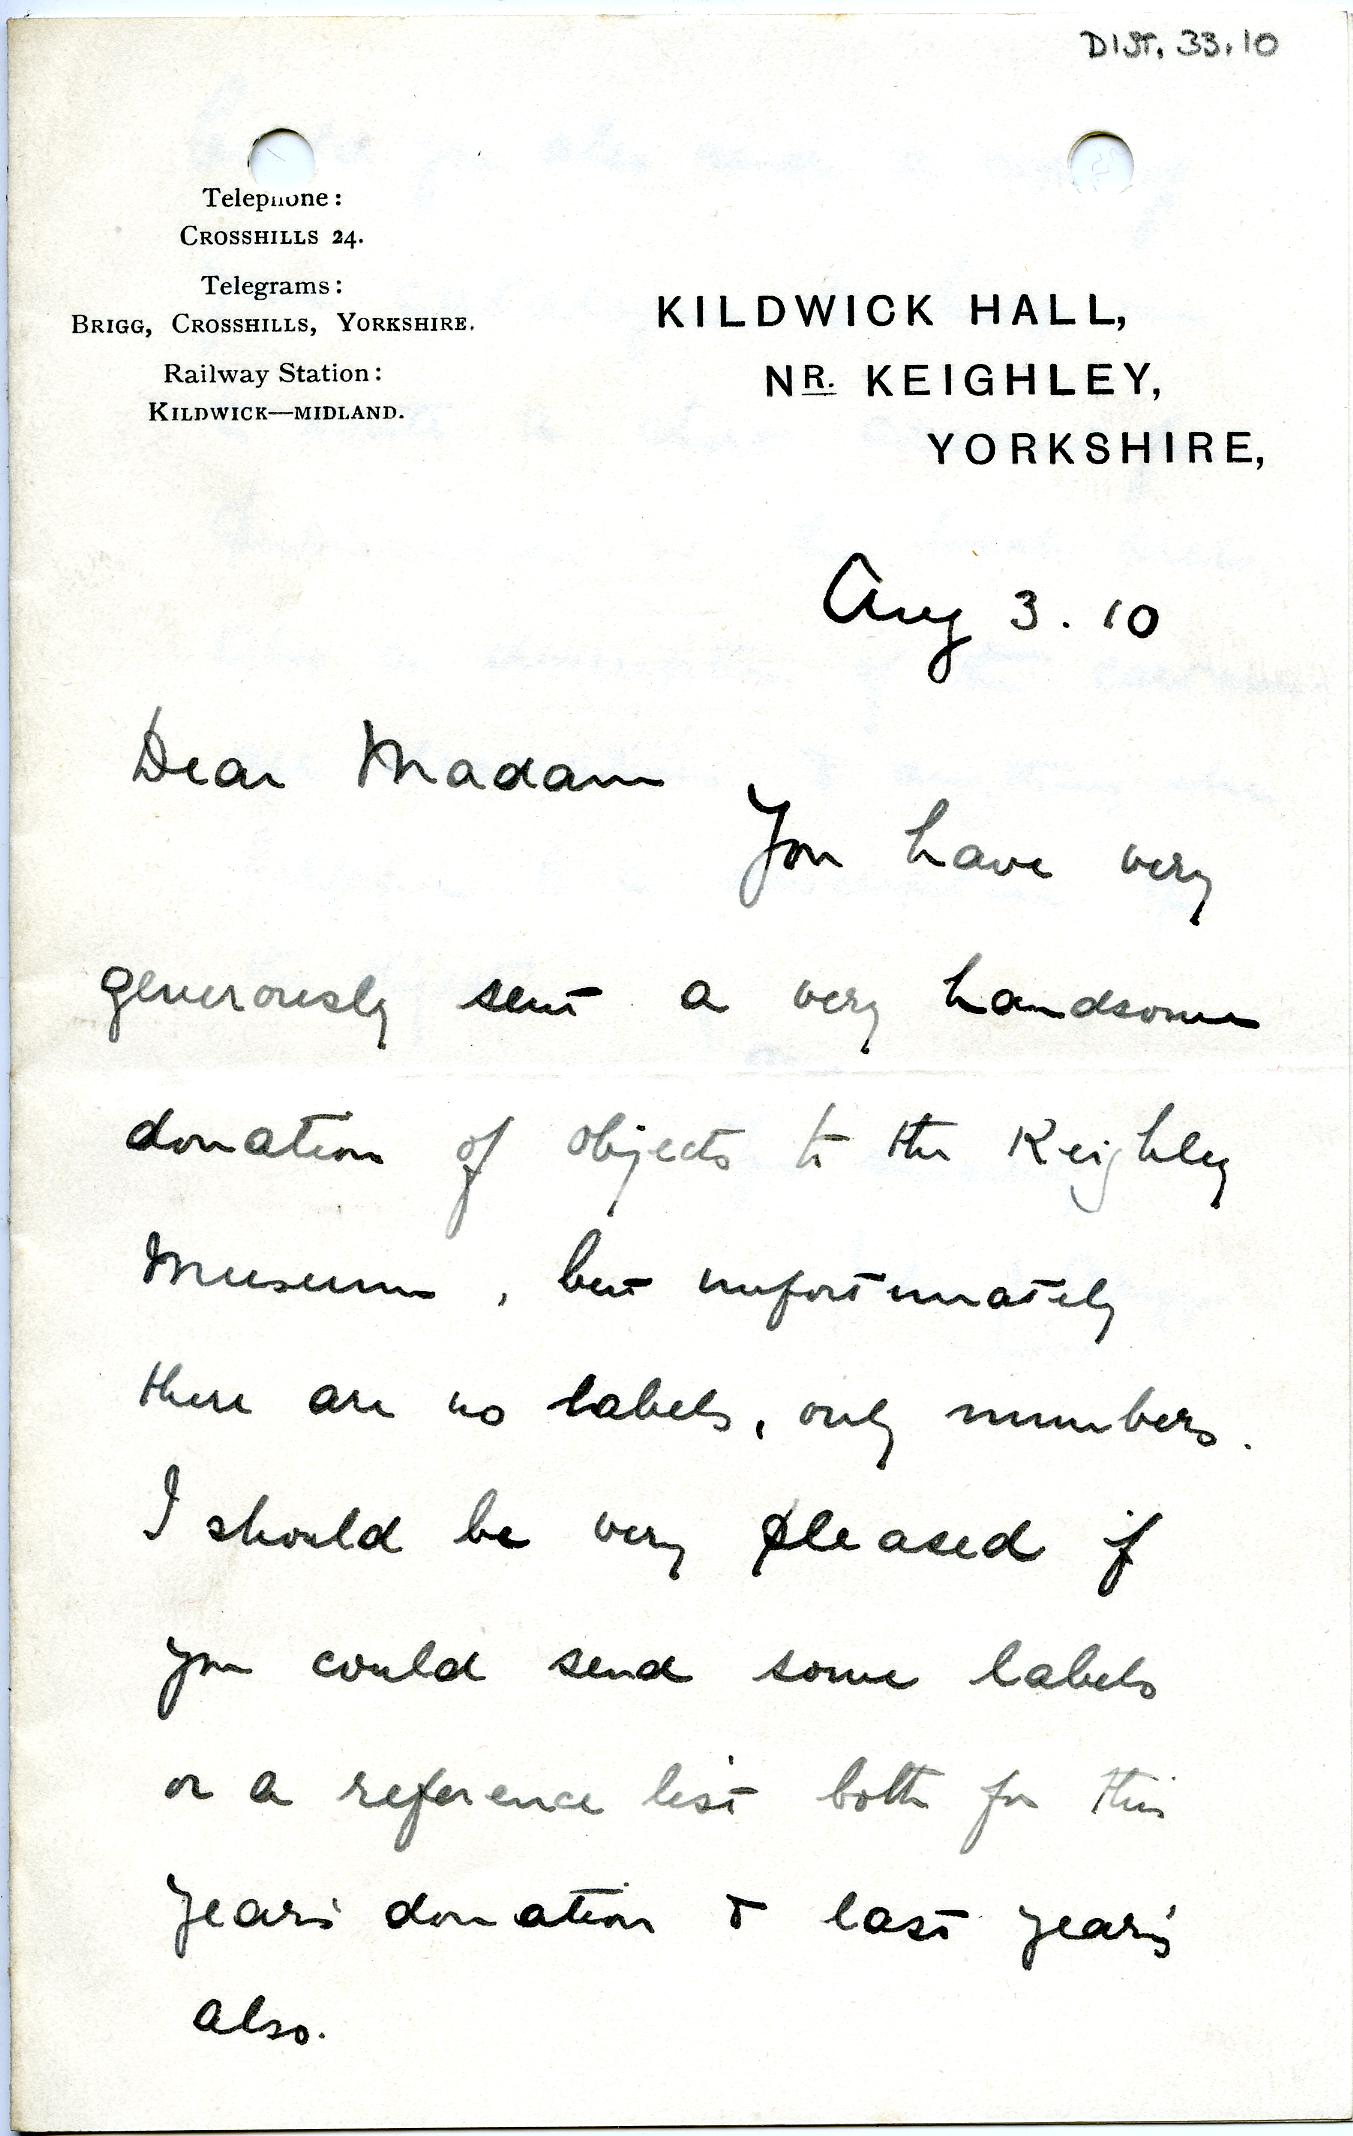 DIST. 33.10
Telephone:
CROSSHILLS 24.
Telegrams:
BRIGG, CROSSHILLS, YORKSHIRE.
Railway Station:
KILDWICK—MIDLAND.
KILDWICK HALL,
NR. KEIGHLEY,
YORKSHIRE,
Aug 3. 10
Dear Madam
You have very
generously sent a very handsome
donation of objects to the Keighley
Museum, but unfortunately
there are no labels, only numbers.
I should be very pleased if
you could send some labels
or a reference list both for this
year's donation & last year's
also.